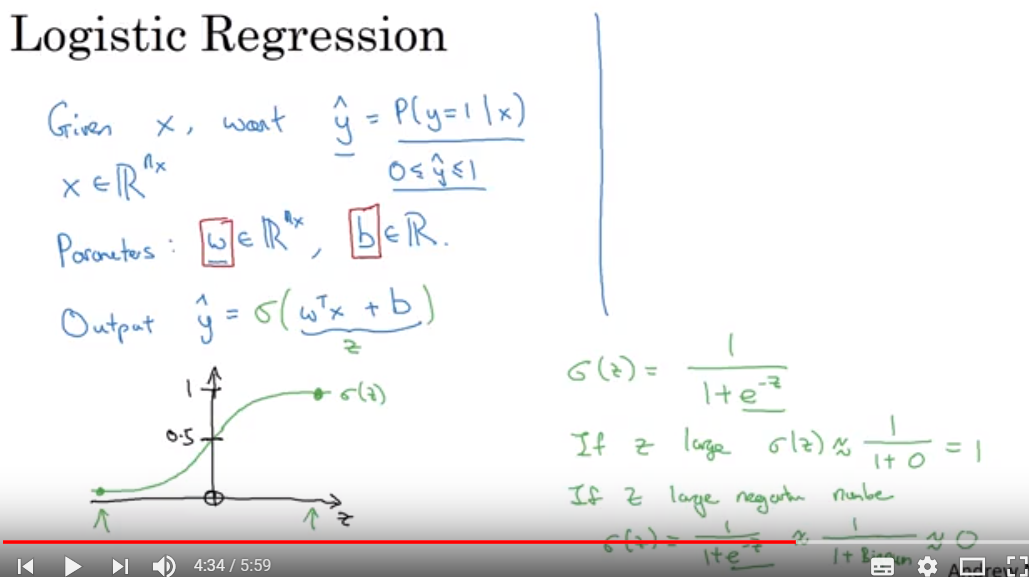 Logistic Regression
Given x, want ŷ = P(y=1|x)
x ∈ ℝ^{n_x}
0 ≤ ŷ ≤ 1
Parameters: w ∈ ℝ^{n_x}, b ∈ ℝ.
Output ŷ = σ(w^T x + b)
z
1
σ(z)
0.5
z
σ(z) = 1/(1+e^{-z})
If z large σ(z) ≈ 1/(1+0) = 1
If z large negative number
σ(z) = 1/(1+e^{-z}) ≈ 1/(1+Bignum) ≈ 0
4:34 / 5:59
Andrew